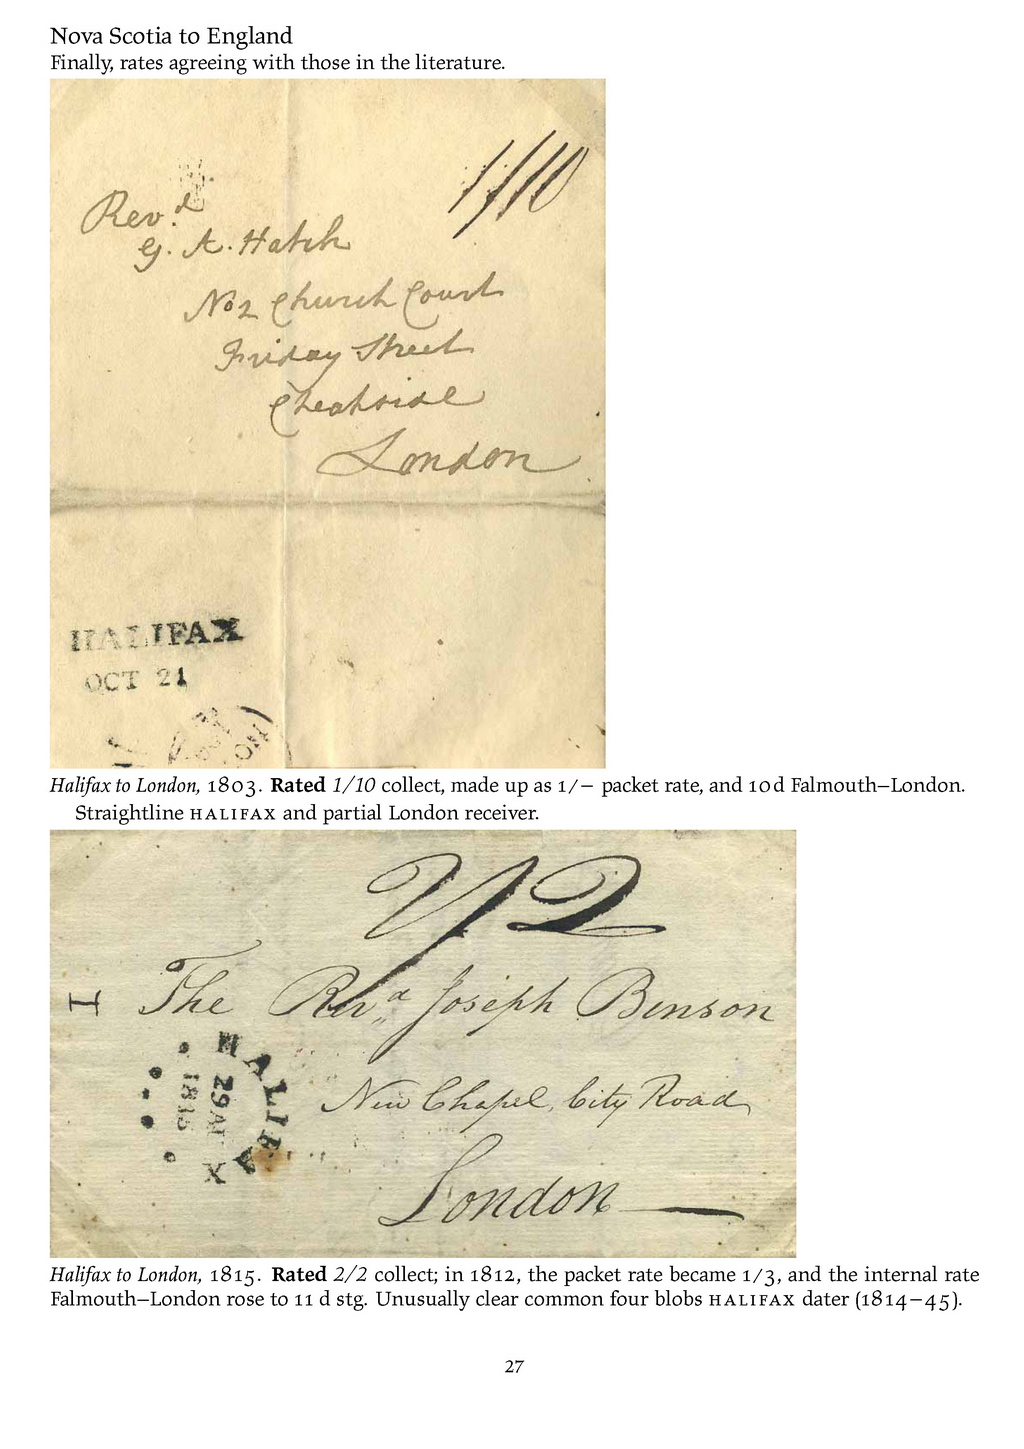 Nova Scotia to England
Finally, rates agreeing with those in the literature.
1/10
Revd.
G. A. Hatch
No 2 Church Court
Friday Street
Cheapside
London
HALIFAX
OCT 21
Halifax to London, 1803. Rated 1/10 collect, made up as 1/– packet rate, and 10d Falmouth–London.
Straightline HALIFAX and partial London receiver.
2/2
I
The Revd Joseph Benson
HALIFAX
1815
New Chapel, City Road
London
Halifax to London, 1815. Rated 2/2 collect; in 1812, the packet rate became 1/3, and the internal rate
Falmouth–London rose to 11 d stg. Unusually clear common four blobs HALIFAX dater (1814–45).
27